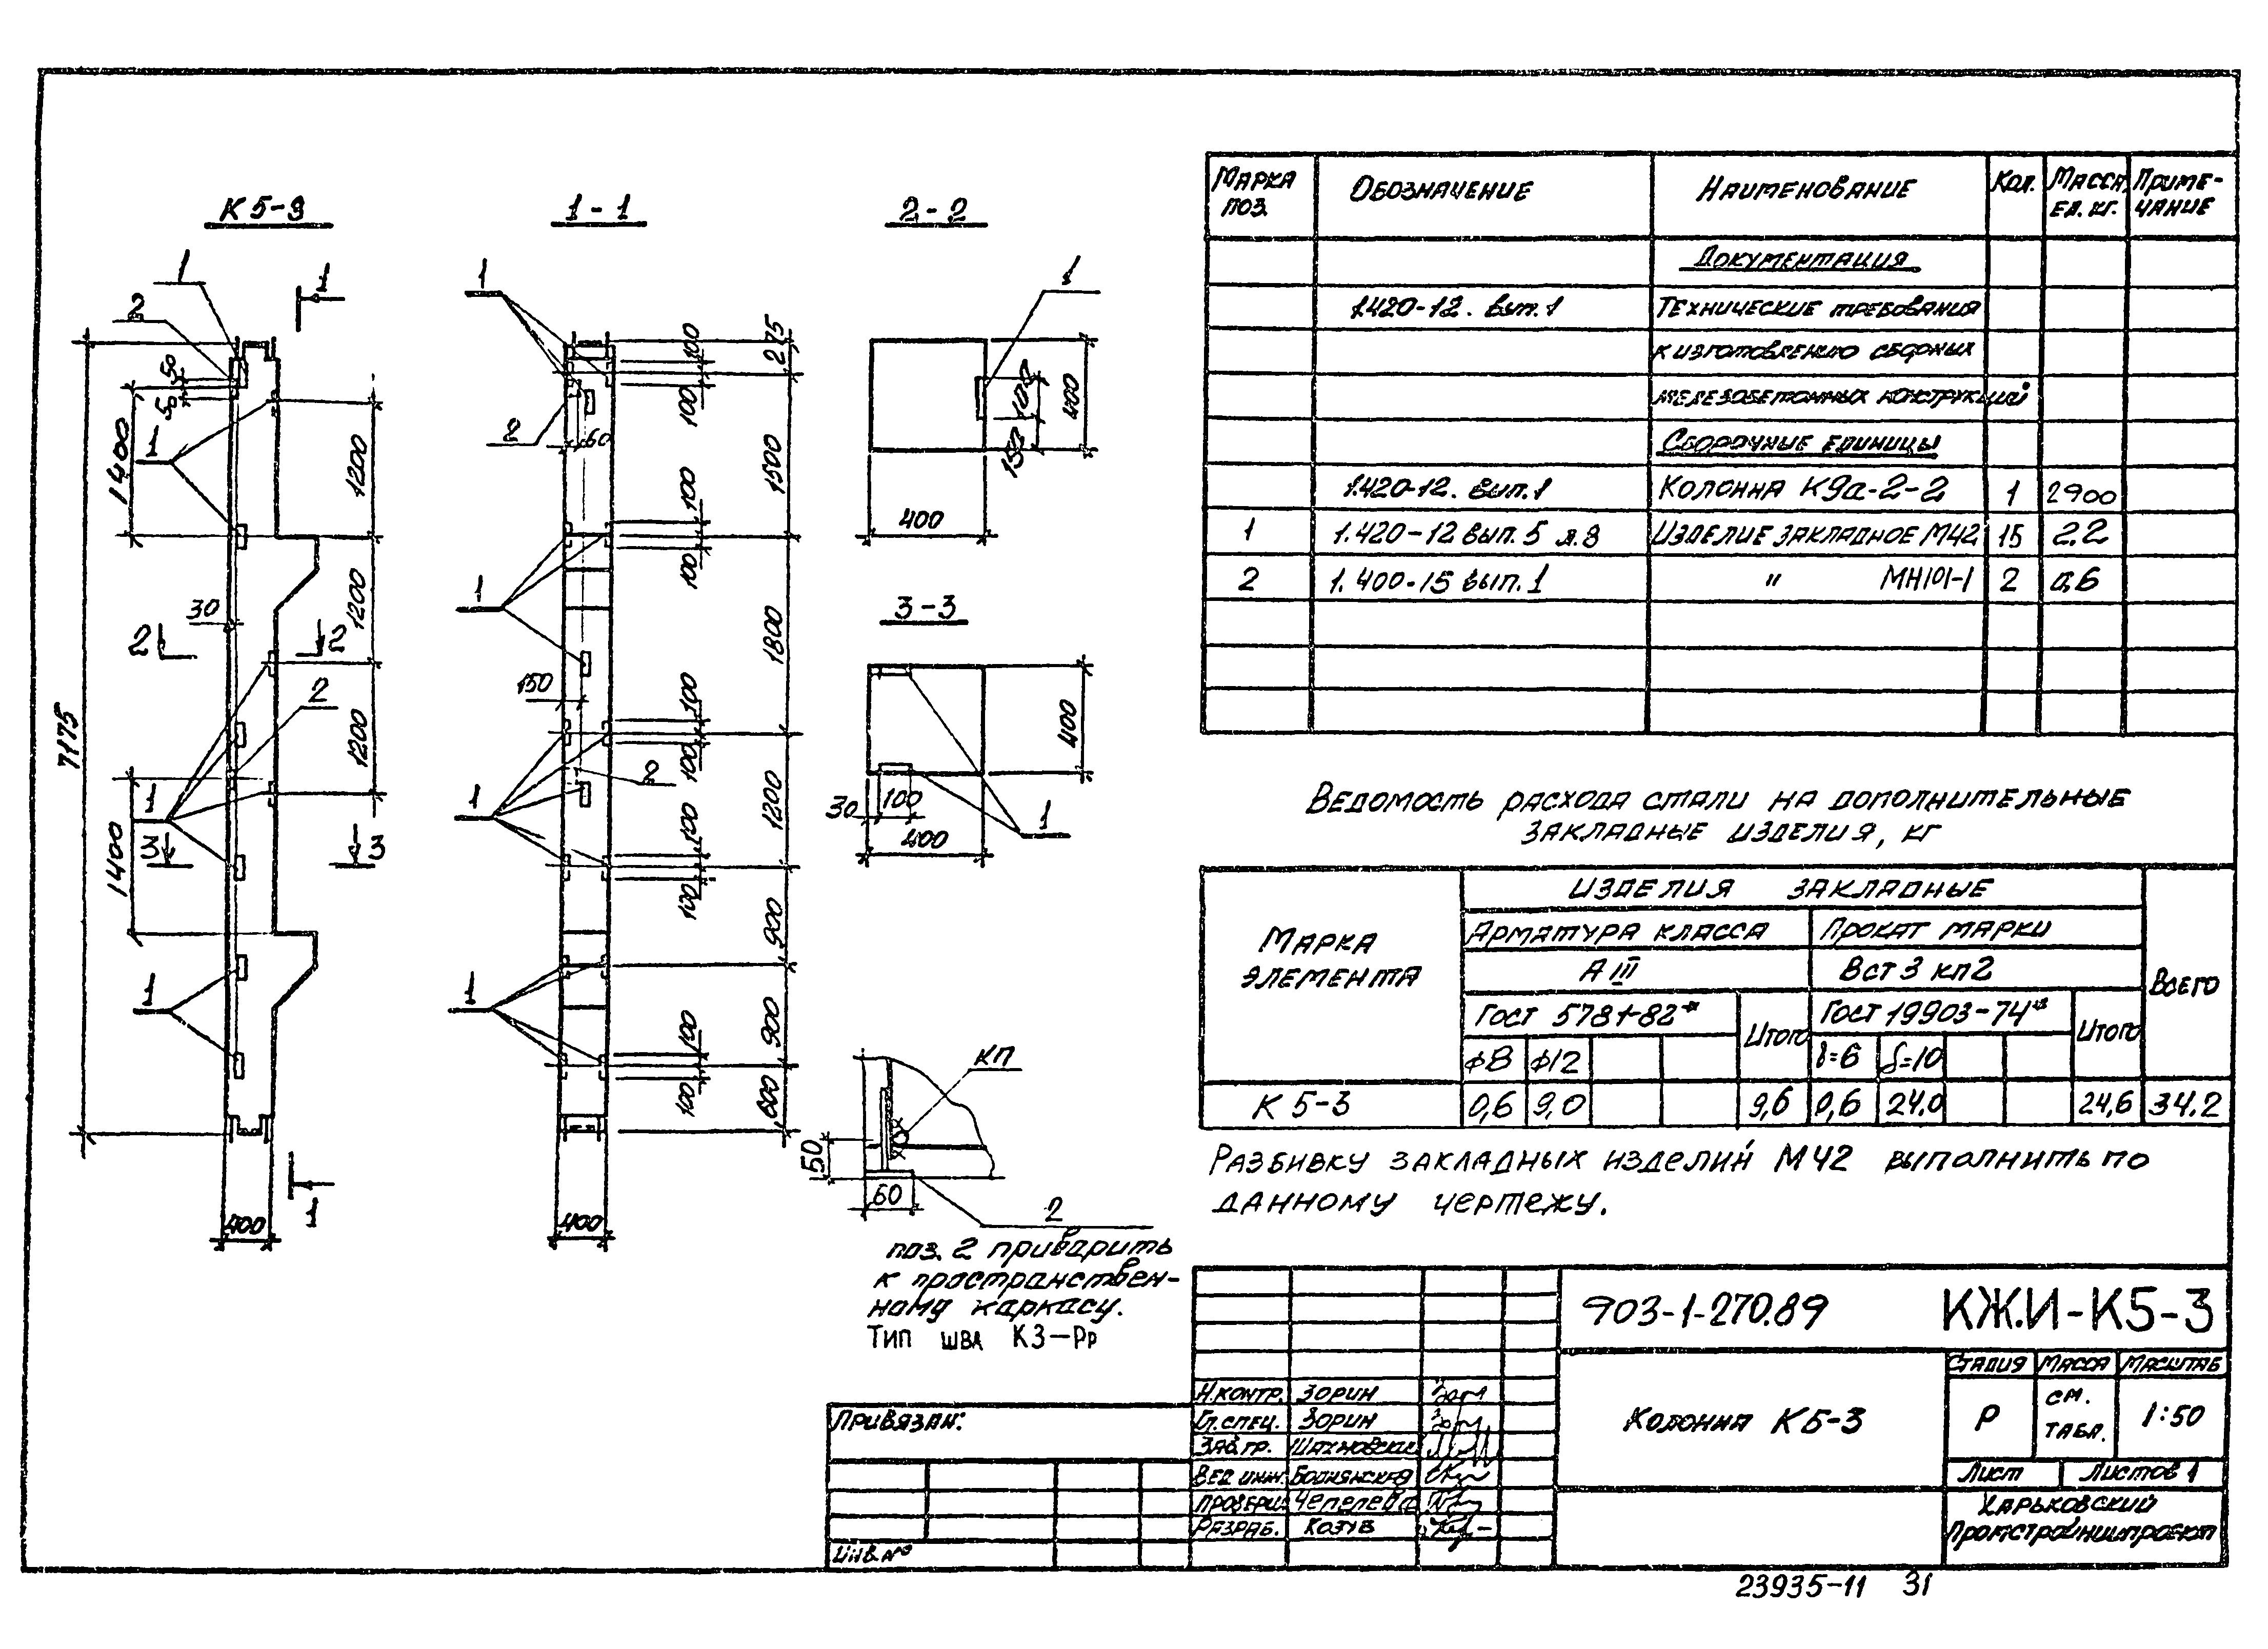 К 5-3
1-1
2-2
3-3
1
2
1
50
50
1400
1
1200
1200
30
2
2
2
1200
7175
1
3
3
1400
1
1
400
1
100
275
100
2
60
1500
100
100
1
1800
150
100
100
2
1
1200
100
100
900
1
900
100
100
600
400
1
100
150
400
400
400
30
100
400
1
КП
50
60
2
поз. 2 приварить
к пространствен-
ному каркасу.
Тип шва К3-Рр
Марка поз.
Обозначение
Наименование
Кол.
Масса ед. кг.
Примечание
Документация
1.420-12. вып. 1 Технические требования
к изготовлению сборных
железобетонных конструкций
Сборочные единицы
1.420-12. вып. 1 Колонна К9а-2-2 1 2900
1 1.420-12 вып. 5 л. 8 Изделие закладное М42 15 2.2
2 1.400-15 вып. 1 " МН101-1 2 0,6
Ведомость расхода стали на дополнительные
закладные изделия, кг
Марка элемента
Изделия закладные
Всего
Арматура класса Прокат марки
А III Вст 3 кп2
Гост 5781-82* Итого Гост 19903-74* Итого
ф8 ф12 δ=6 δ=10
К 5-3 0,6 9,0 9,6 0,6 24,0 24,6 34.2
Разбивку закладных изделий М42 выполнить по
данному чертежу.
903-1-270.89 КЖ.И-К5-3
Стадия Масса Масштаб
Колонна К5-3
Р см. табл. 1:50
Лист Листов 1
Харьковский
Промстройниипроект
Н.контр. Зорин
Гл.спец. Зорин
Зав.гр.
Вед инж.
Провери. Чепелева
Разраб.
Привязан:
Инв. №
23935-11 31